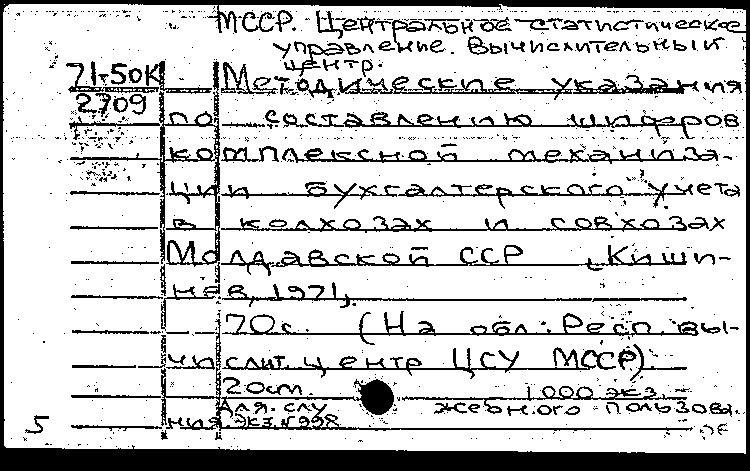 МССР. Центральное статистическое
управление. Вычислительный
центр.
71-50К Методические указания
2709 по составлению шифров
комплексной механиза-
ции бухгалтерского учета
в колхозах и совхозах
Молдавской ССР [Киши-
нев, 1971].
70с. (На обл.: Респ. вы-
числит. центр ЦСУ МССР).
20см. 1000 экз. –
Для. слу жебного пользова.
ния. Экз. №998
5